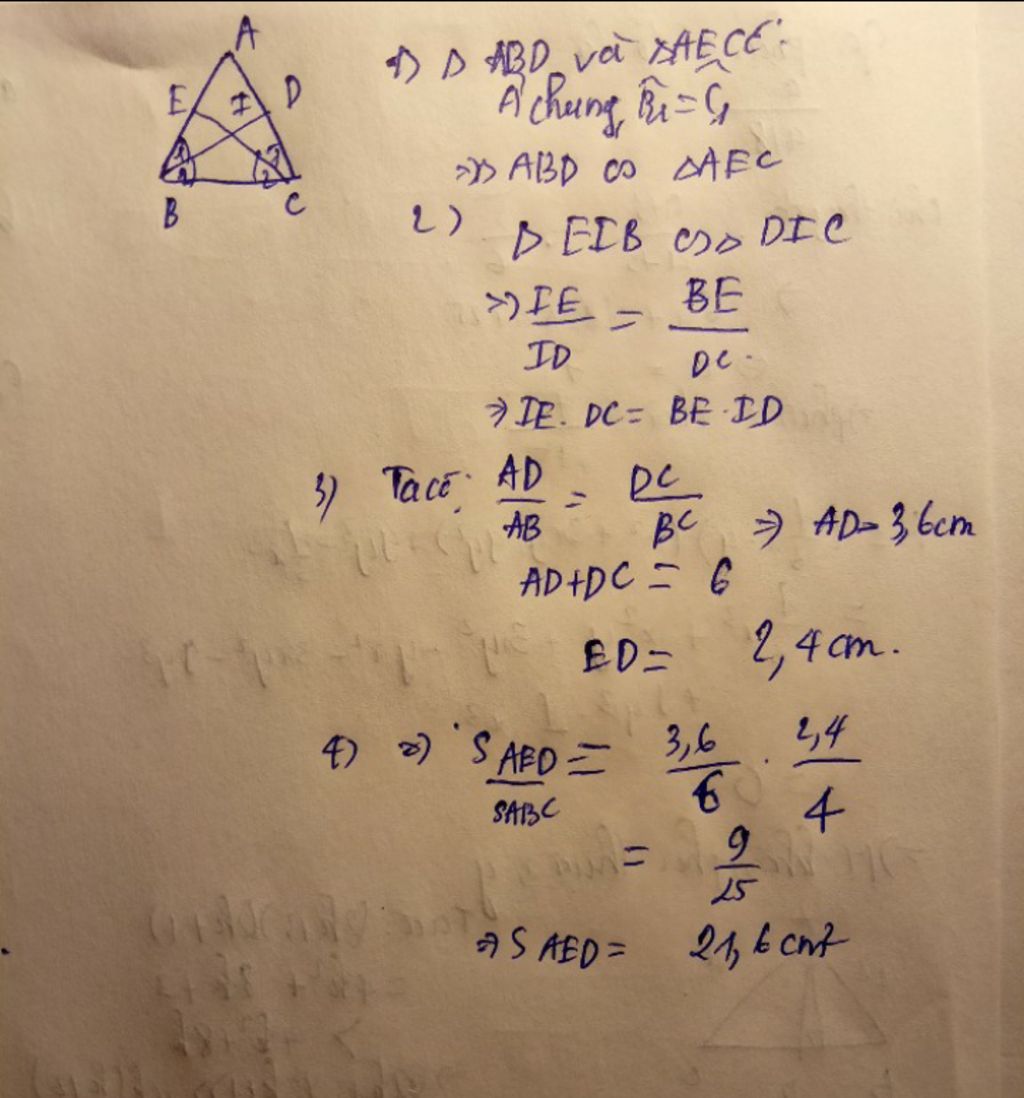 A
E I D
1 1
2 2
B C
1) Δ ABD và ΔAEC:
Â chung, B̂₁ = Ĉ₁
=> Δ ABD ∽ ΔAEC
2) Δ EIB ∽ Δ DIC
=> IE/ID = BE/DC
=> IE. DC = BE. ID
3) Ta có: AD/AB = DC/BC => AD = 3,6cm
AD+DC = 6
ED = 2,4 cm.
4) S AED/SABC = 3,6/6 . 2,4/4
= 9/25
=> S AED = 21,6 cm²